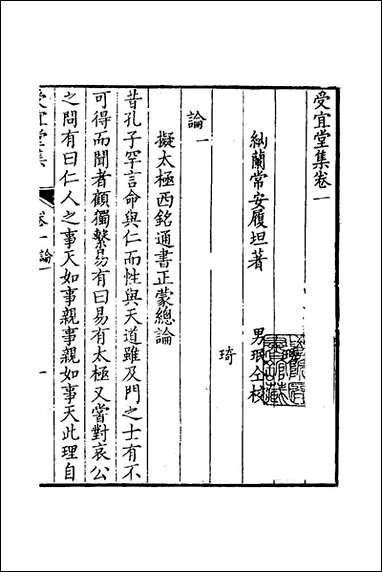 受宜堂集卷一
納蘭常安履坦著
男珉仝校
琦
論一
擬太極西銘通書正蒙總論
昔孔子罕言命與仁而性與天道雖及門之士有不
可得而聞者顧獨繫易有曰易有太極又嘗對哀公
之問有曰仁人之事天如事親事親如事天此理自
受宜堂集
卷一論一
一